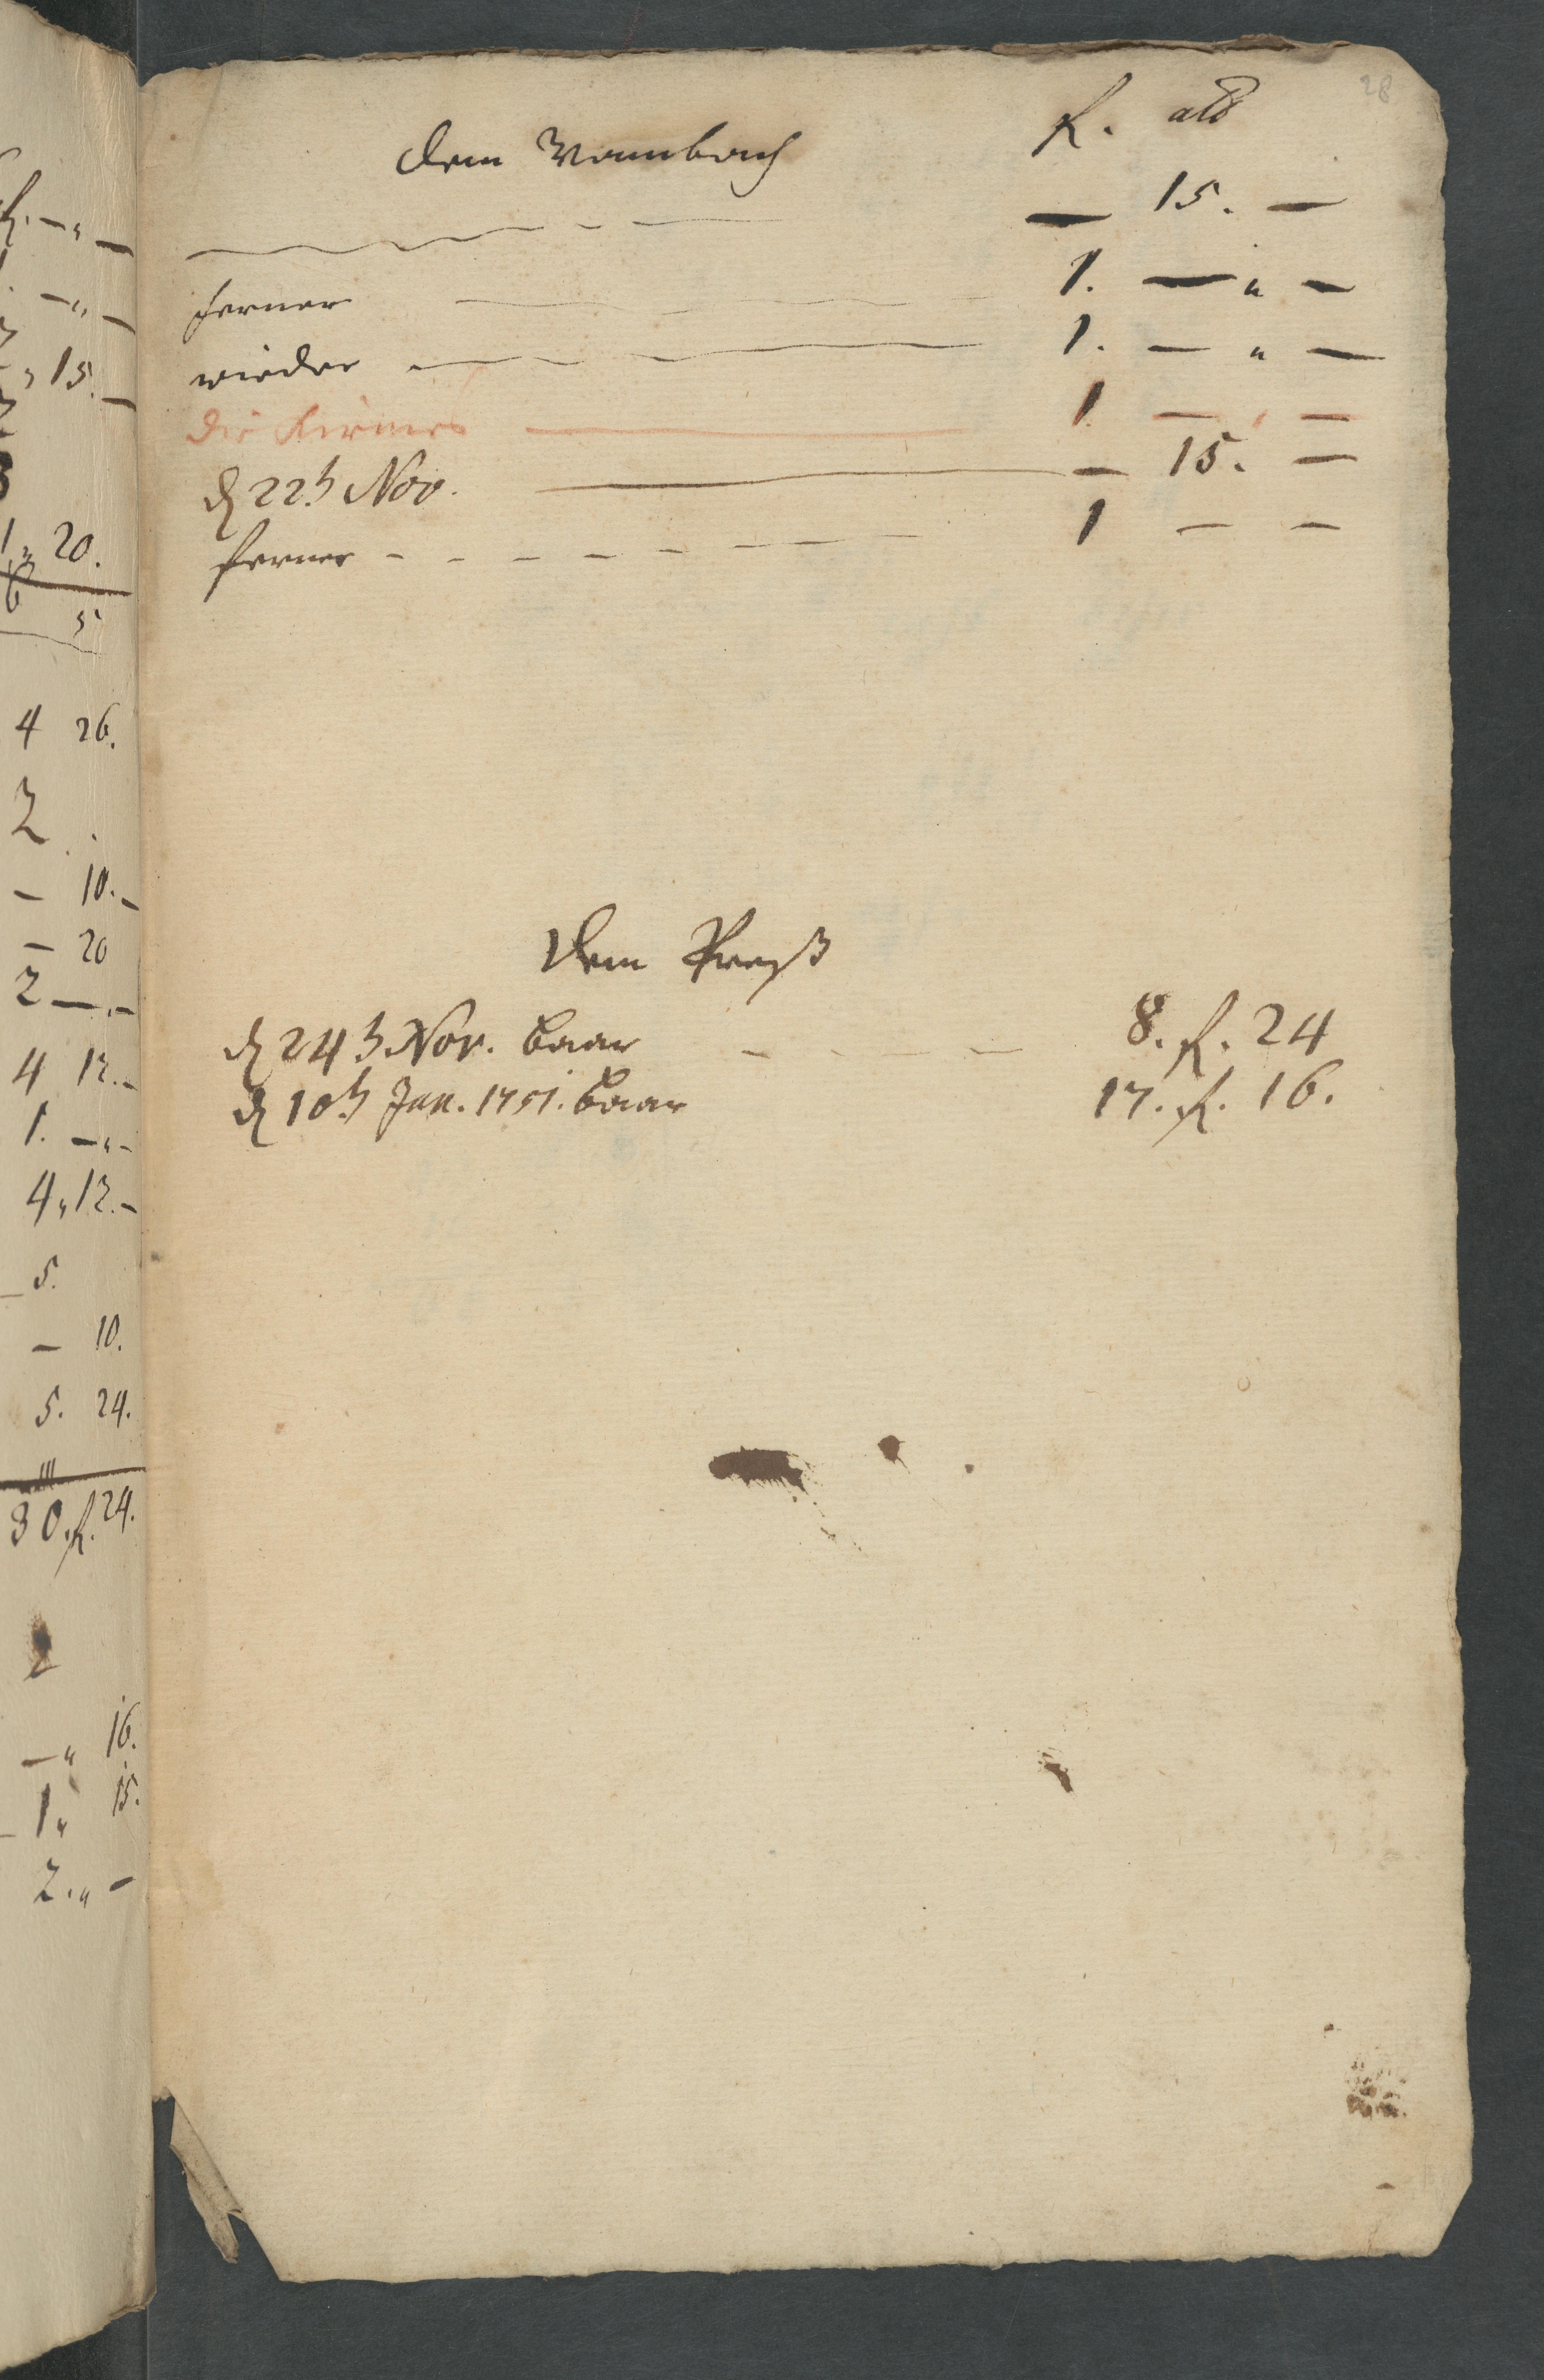 28
dem Wambach R. alb
— 15. —
ferner 1. — " —
wieder 1. — " —
die Kirmes 1 — , —
d 22t Nov. — 15. —
ferner 1 — —
Dem Preyß
d 24t Nov. baar 8. R. 24
d 10t Jan. 1751. baar 17. R. 16.
R. — " —
— " —
" 15. —
1 " 20.
6 5
4 26.
2
— 10. —
— 20
2 — . —
4 12. —
1. — " —
4 " 12. —
5.
— 10.
5. 24.
30. R. 24.
2
— " 16.
1 " 15.
2. " —